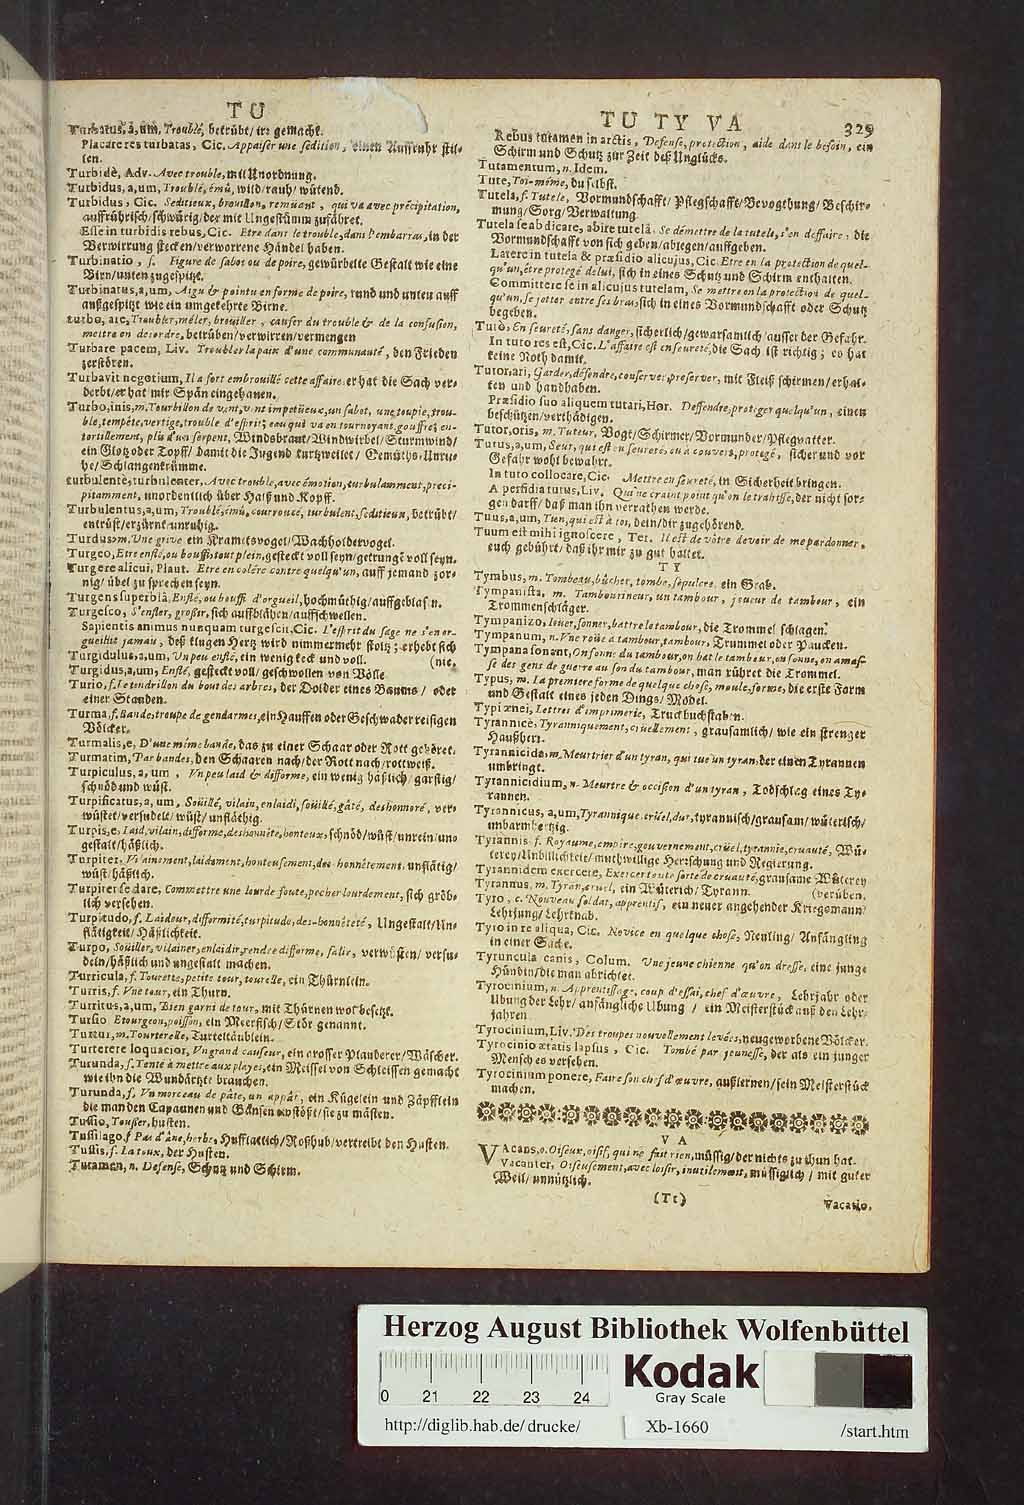 TU
Turbatus, a, um, Troublé, betrübt/irr gemacht.
Placare res turbatas, Cic. Appaiser une sedition, einen Auffruhr stil-
len.
Turbidè, Adv. Avec trouble, mit Unordnung.
Turbidus, a, um, Troublé, émû, wild/rauh/wütend.
Turbidus, Cic. Seditieux, brouillon, remüant, qui va avec précipitation,
auffrührisch/schwürig/der mit Ungestümm zufähret.
Esse in turbidis rebus, Cic. Etre dans le trouble, dans l'embarras, in der
Verwirrung stecken/verworrene Händel haben.
Turbinatio, f. Figure de sabot ou de poire, gewürbelte Gestalt wie eine
Birn/unten zugespitzt.
Turbinatus, a, um, Aigu & pointu en forme de poire, rund und unten auff
außgespitzt wie ein umgekehrte Birne.
turbo, are, Troubler, méler, brouiller, causer du trouble & de la confusion,
mettre en desordre, betrüben/verwirren/vermengen
Turbare pacem, Liv. Troubler la paix d'une communauté, den Frieden
zerstören.
Turbavit negotium, Il a fort embrouillé cette affaire, er hat die Sach ver-
derbt/er hat mir Spän eingehauen.
Turbo, inis, m. Tourbillon de vent, vent impetüeux, un sabot, une toupie, trou-
ble, tempéte, vertige, trouble d'esprit; eau qui va en tournoyant, gouffre; en-
tortillement, plis d'un serpent, Windsbraut/Windwirbel/Sturmwind/
ein Glotz oder Topff/ damit die Jugend kurtzweilet/ Gemüths-Unru-
he/Schlangenkrümme.
turbulente, turbulenter, Avec trouble, avec émotion, turbulamment, preci-
pitamment, unordentlich über Halß und Kopff.
Turbulentus, a, um, Troublé, émû, courroucé, turbulent, seditieux, betrübt/
entrüst/erzürnt unruhig.
Turdus, m. Une grive ein Kramtsvogel/Wachholdervogel.
Turgeo, Etre enflé, ou bouffi, tout plein, gesteckt voll seyn/getrungẽ voll seyn.
Turgere alicui, Plaut. Etre en colére contre quelqu'un, auff jemand zor-
nig/übel zu sprechen seyn.
Turgens superbiâ, Enflé, ou bouffi d'orgueil, hochmüthig/auffgeblasen.
Turgesco, S'enfler, grossir, sich auffblähen/auffschwellen.
Sapientis animus nunquam turgescit, Cic. L'esprit du sage ne s'en or-
gueillit jamais, deß klugen Hertz wird nimmermehr stoltz; erhebt sich
Turgidulus, a, um, Un peu enflé, ein wenig keck und voll. (nie.
Turgidus, a, um, Enflé, gesteckt voll/geschwollen von Völle
Turio, f. Le tendrillon du bout des arbres, der Dolder eines Baums/ oder
einer Standen.
Turma, f. Bande, troupe de gendarmes, ein Hauffen oder Geschwader reisigen
Völcker.
Turmalis, e, D'une même bande, das zu einer Schaar oder Rott gehöret.
Turmatim, Par bandes, den Schaaren nach/der Rott nach/rottweiß.
Turpiculus, a, um, Un peu laid & difforme, ein wenig häßlich/garstig/
schnöd und wüst.
Turpificatus, a, um, Soüillé, vilain, enlaidi, soüillé, gâté, deshonnoré, ver-
wüstet/versudelt/wüst/unflätig.
Turpis, e, Laid, vilain, difforme, deshonnête, honteux, schnöd/wüst/unrein/unge
gestalt/häßlich.
Turpiter, Vilainement, laidement, honteusement, des-honnêtement, unflätig/
wüst/häßlich.
Turpiter se dare, Commettre une lourde faute, pecher lourdement, sich gröb-
lich versehen.
Turpitudo, f. Laideur, difformité, turpitude, des-honnêteté, Ungestalt/Un-
flätigkeit/Häßlichkeit.
Turpo, Soüiller, vilainer, enlaidir, rendre difforme, salir, verwüsten/versu-
deln/häßlich und ungestalt machen.
Turricula, f. Tourette, petite tour, tourelle, ein Thürnlein.
Turris, f. Une tour, ein Thurn.
Turritus, a, um, Bien garni de tour, mit Thürnen wol besetzt.
Tursio Etourgeon, poisson, ein Meerfisch/Stör genannt.
Turtur, m. Tourterelle, Turteltäublein.
Turterere loquacior, Un grand causeur, ein grosser Plauderer/Wäscher.
Turunda, f. Tente à mettre aux playes, ein Meissel von Schleissen gemacht
wie ihn die Wundärtzte brauchen.
Turunda, f. Un morceau de pâte, un appât, ein Kügelein und Zäpfflein
die man den Capaunen und Gänsen einstößt/sie zu mästen.
Tussio, Tousser, husten.
Tussilago, f Pas d'âne, herbe, Hufflattich/Roßhub/vertreibt den Husten.
Tussis, f. La toux, der Husten.
Tutamen, n. Defense, Schutz und Schirm.
TU TY VA 329
Rebus tutamen in arctis, Defense, protection, aide dans le besoin, ein
Schirm und Schutz zur Zeit deß Unglücks.
Tutamentum, n. Idem.
Tute, Toi-même, du selbst.
Tutela, f. Tutele, Vormundschafft/Pflegschafft/Bevogthung/Beschir-
mung/Sorg/Verwaltung
Tutela se abdicare, abire tutelâ, Se démettre de la tutele, s'en deffaire, die
Vormundschafft von sich geben/ablegen/auffgeben.
Latere in tutela & præsidio alicujus, Cic. Etre en la protection de quel-
qu'un, être protegé de lui, sich in eines Schutz und Schirm enthalten.
Committere se in alicujus tutelam, Se mettre en la protection de quel-
qu'un, se jetter entre ses bras, sich in eines Vormundschafft oder Schutz
begeben.
Tutò, En seureté, sans danger, sicherlich/gewarsamlich/ausser der Gefahr.
In tuto res est, Cic. L'affaire est en seureté, die Sach ist richtig; es hat
keine Noth damit.
Tutor, ari, Garder, défendre, conserver, preserver, mit Fleiß schirmen/erhal-
ten und handhaben.
Præsidio suo aliquem tutari, Hor. Deffendre, proteger quelqu'un, einen
beschützen/verthädigen.
Tutor, oris, m. Tuteur, Vogt/Schirmer/Vormunder/Pflegvatter.
Tutus, a, um, Seur, qui est en seureté, ou à couvert, protegé, sicher und vor
Gefahr wohl bewahrt.
In tuto collocare, Cic. Mettre en seureté, in Sicherheit bringen.
A perfidia tutus, Liv. Qui ne craint point qu'on le trahisse, der nicht sor-
gen darff/daß man ihn verrathen werde.
Tuus, a, um, Tien, qui est à toi, dein/dir zugehörend.
Tuum est mihi ignoscere, Ter. Il est de vôtre devoir de me pardonner,
euch gebührt/daß ihr mir zu gut haltet.
TY
Tymbus, m. Tombeau, bûcher, tombe, sepulcre, ein Grab.
Tympanista, m. Tambourineur, un tambour, joueur de tambour, ein
Trommenschläger.
Tympanizo, Iouer, sonner, battre le tambour, die Trommel schlagen.
Tympanum, n. Une roüe à tambour, tambour, Trummel oder Paucken.
Tympana sonant, On sonne du tambour, on bat le tambour, on sonne, on amas-
se des gens de guerre au son du tambour, man rühret die Trommel.
Typus, m. La premiere forme de quelque chose, moule, forme, die erste Form
und Gestalt eines jeden Dings/Model.
Typi ænei, Lettres d'imprimerie, Truckbuchstaben.
Tyrannicè, Tyranniquement, cruellement, grausamlich/wie ein strenger
Haußherr.
Tyrannicida, m. Meurtrier d'un tyran, qui tue un tyran, der einen Tyrannen
umbringt.
Tyrannicidium, n. Meurtre & occision d'un tyran, Todschlag eines Ty-
rannen.
Tyrannicus, a, um, Tyrannique, crüel, dur, tyrannisch/grausam/wüterisch/
unbarmhertzig.
Tyrannis f. Royaume, empire, gouvernement, crüel, tyrannie, cruauté, Wü-
terey/Unbillichkeit/muthwillige Herrschung und Regierung.
Tyrannidem exercere, Exercer toute sorte de cruauté, grausame Wüterey
Tyrannus, m. Tyran, cruel, ein Wüterich/Tyrann. (verüben.
Tyro, c. Nouveau soldat, apprentif, ein neuer angehender Kriegsmann/
Lehrjung/Lehrknab.
Tyro in re aliqua, Cic. Novice en quelque chose, Neuling/Anfängling
in einer Sache.
Tyruncula canis, Colum. Une jeune chienne qu'on dresse, eine junge
Hündin/die man abrichtet.
Tyrocinium, n. Apprentissage, coup d'essai, chef d'œuvre, Lehrjahr oder
Ubung der Lehr/anfängliche Ubung/ ein Meisterstück auß den Lehr-
jahren
Tyrocinium, Liv. Des troupes nouvellement levées, neugeworbene Völcker.
Tyrocinio ætatis lapsus, Cic. Tombé par jeunesse, der als ein junger
Mensch es versehen.
Tyrocinium ponere, Faire son chef d'œuvre, außlernen/sein Meisterstück
machen.
VA
VAcans, o. Oiseux, oisif, qui ne fait rien, müssig/der nichts zu thun hat.
Vacanter, Oiseusement, avec loisir, inutilement, müssiglich/ mit guter
Weil/unnützlich.
(Tt)
Vacatio,
Herzog August Bibliothek Wolfenbüttel
0 21 22 23 24
Kodak
Gray Scale
http://diglib.hab.de/drucke/ Xb-1660 /start.htm